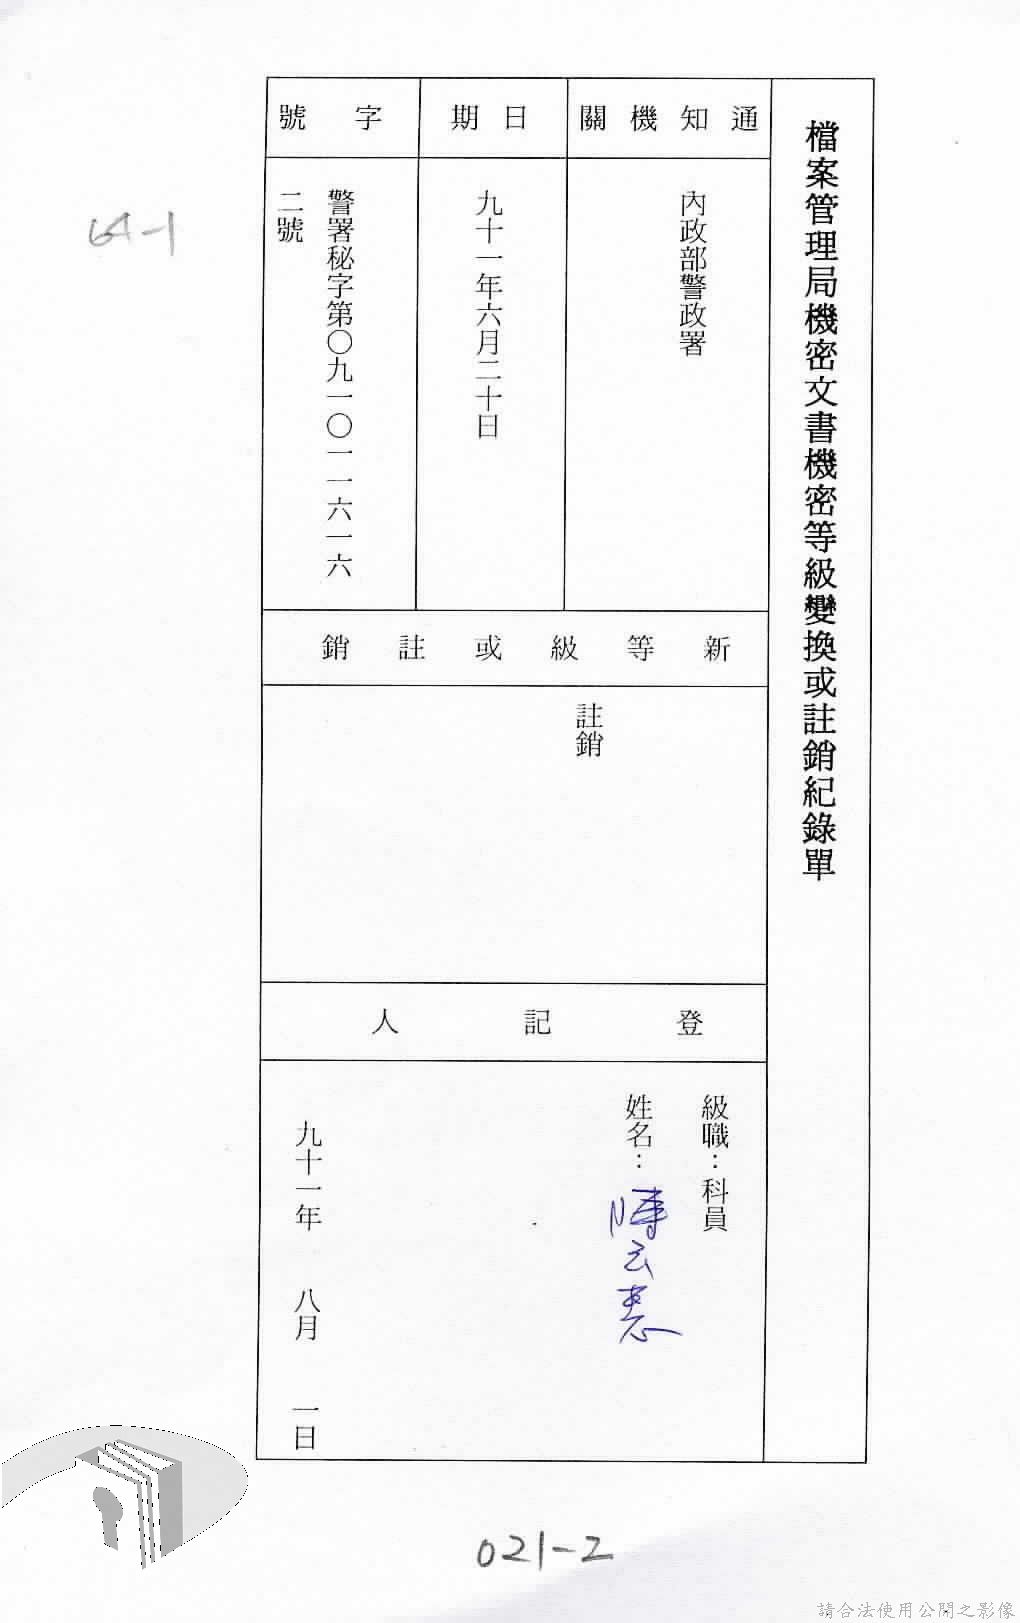 檔案管理局機密文書機密等級變換或註銷紀錄單
通知機關
內政部警政署
日期
九十一年六月二十日
字號
警署秘字第〇九一〇一一六一六
二號
新等級或註銷
註銷
登記人
級職：科員
姓名：
九十一年 八月 一日
64-1
021-2
請合法使用公開之影像